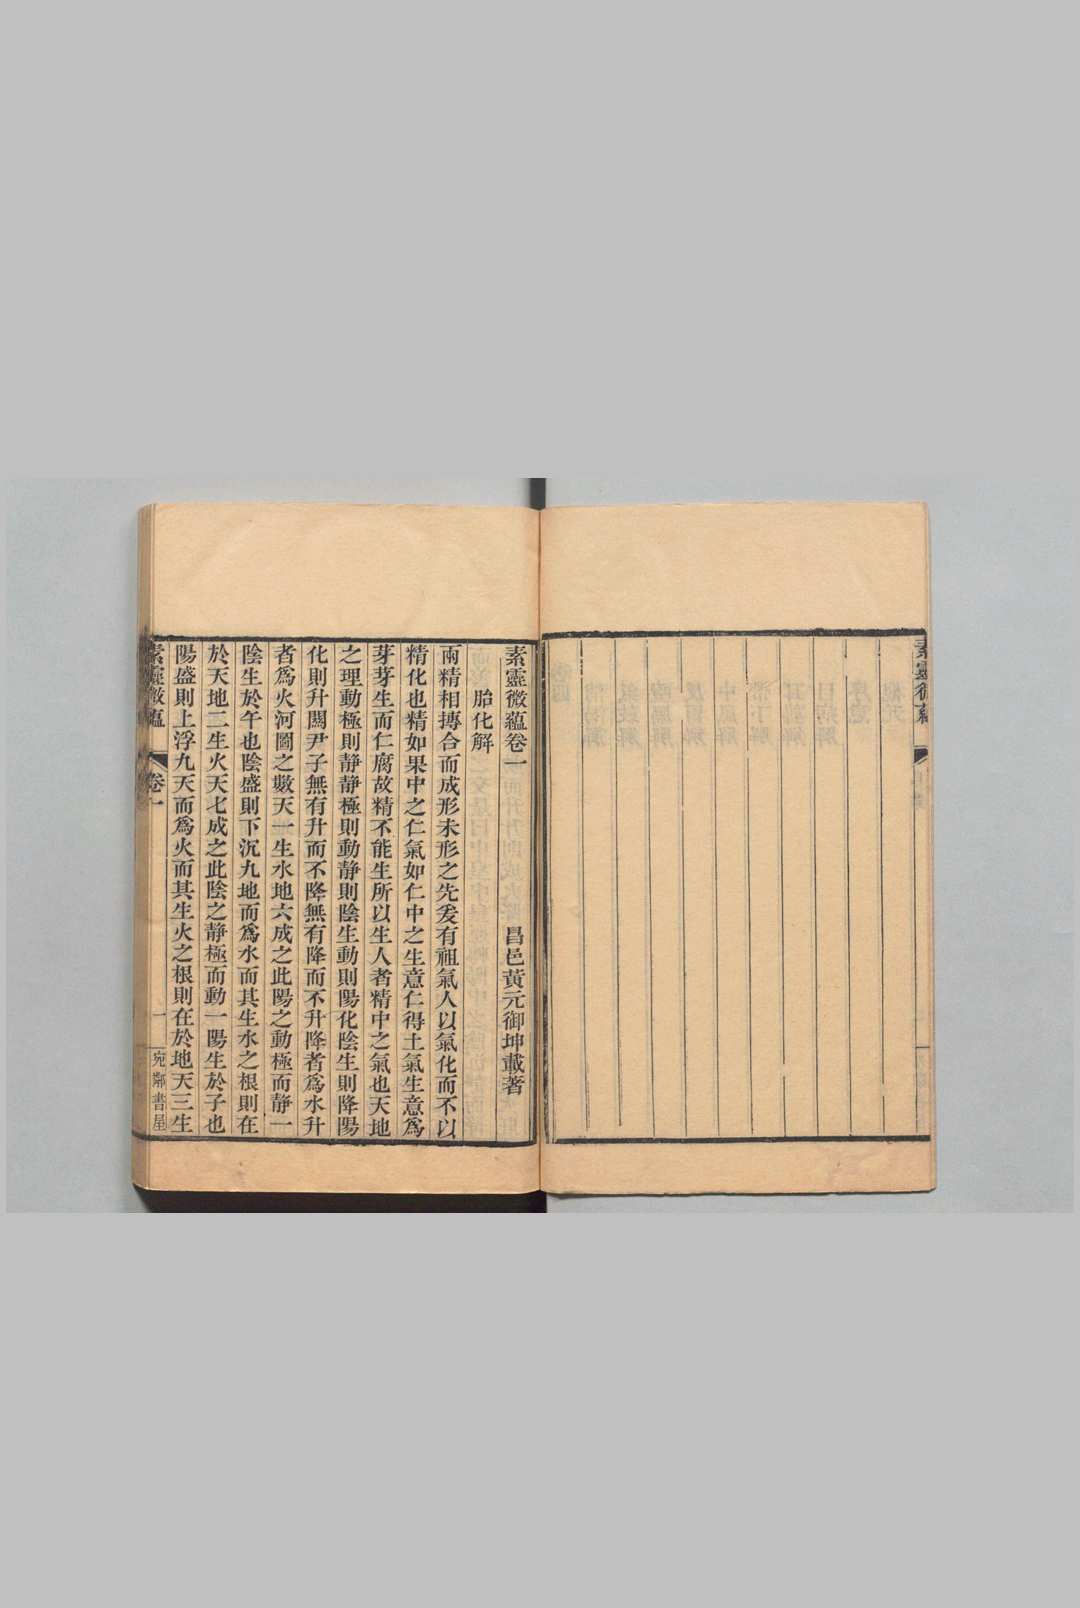 素靈微蘊
素靈微蘊卷一
昌邑黃元御坤載著
胎化解
兩精相摶合而成形未形之先爰有祖氣人以氣化而不以
精化也精如果中之仁氣如仁中之生意仁得土氣生意爲
芽芽生而仁腐故精不能生所以生人者精中之氣也天地
之理動極則静静極則動静則陰生動則陽化陰生則降陽
化則升關尹子無有升而不降無有降而不升降者爲水升
者爲火河圖之數天一生水地六成之此陽之動極而静一
陰生於午也陰盛則下沉九地而爲水而其生水之根則在
於天地二生火天七成之此陰之静極而動一陽生於子也
陽盛則上浮九天而爲火而其生火之根則在於地天三生
素靈微蘊
卷一
一
宛鄰書屋